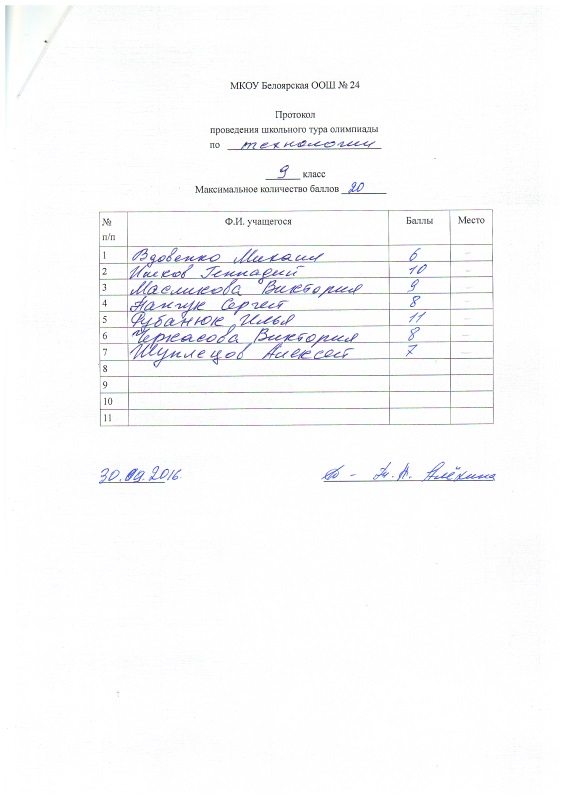 МКОУ Белоярская ООШ № 24
Протокол
проведения школьного тура олимпиады
по технологии
9 класс
Максимальное количество баллов 20
№ п/п Ф.И. учащегося Баллы Место
1 Вдовенко Михаил 6 –
2 Геннадий 10 –
3 Масликова Виктория 9 –
4 Сергей 8 –
5 Рубанюк Илья 11 –
6 Черкасова Виктория 8 –
7 Шуплецов Алексей 7 –
8
9
10
11
30.09.2016. Алёхина